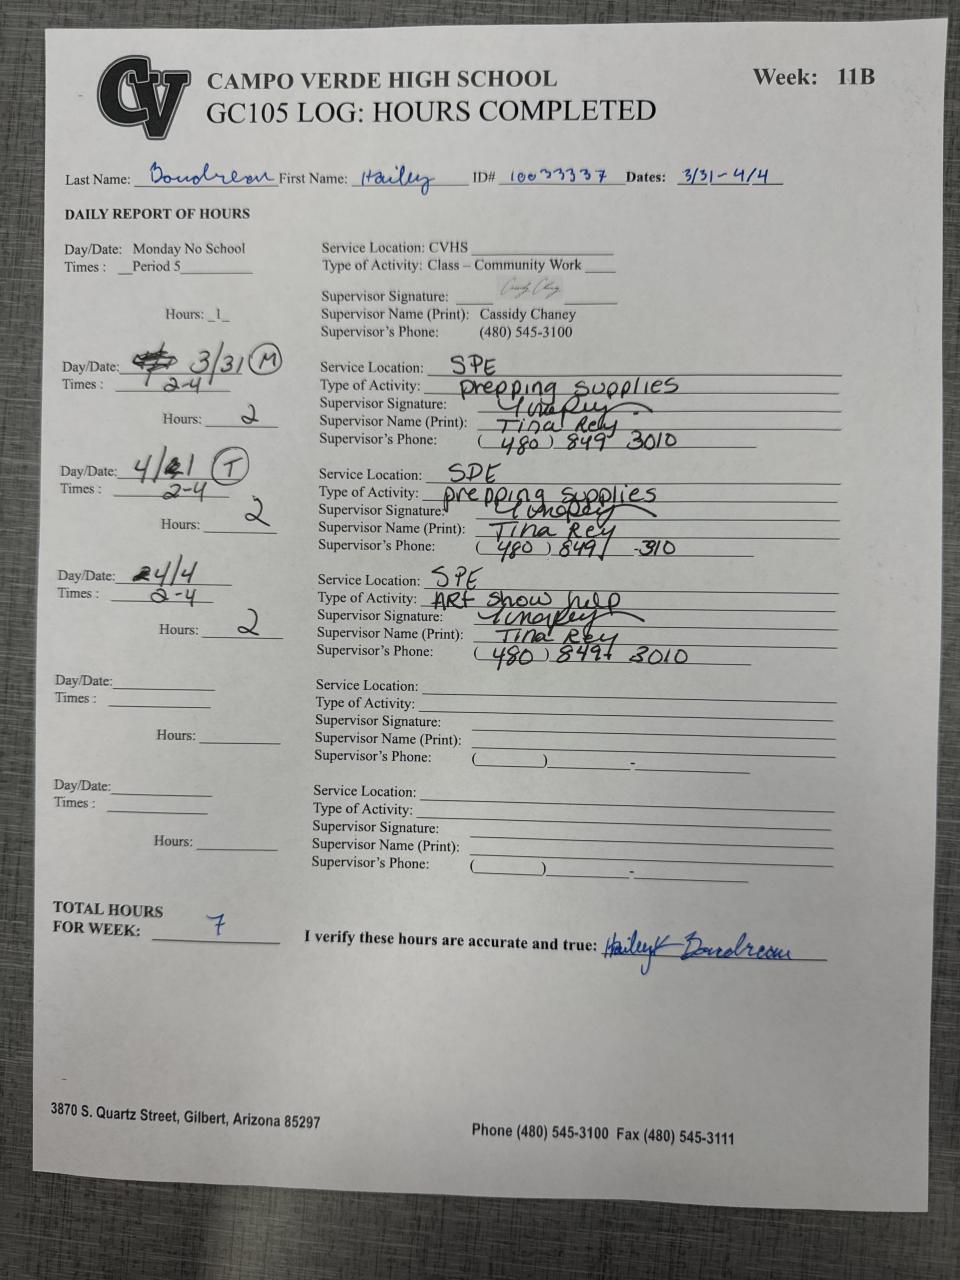 CV
CAMPO VERDE HIGH SCHOOL
Week: 11B
GC105 LOG: HOURS COMPLETED
Last Name: Boudreau First Name: Hailey ID# 10033337 Dates: 3/31-4/4
DAILY REPORT OF HOURS
Day/Date: Monday No School
Service Location: CVHS
Times : Period 5
Type of Activity: Class – Community Work
Supervisor Signature:
Hours: 1
Supervisor Name (Print): Cassidy Chaney
Supervisor's Phone: (480) 545-3100
Day/Date: 3/31 (M)
Service Location: SPE
Times : 2-4
Type of Activity: prepping supplies
Supervisor Signature: Tina Rey
Hours: 2
Supervisor Name (Print): Tina Rey
Supervisor's Phone: (480) 849 3010
Day/Date: 4/1 (T)
Service Location: SPE
Times : 2-4
Type of Activity: prepping supplies
Supervisor Signature: Tina Rey
Hours: 2
Supervisor Name (Print): Tina Rey
Supervisor's Phone: (480) 849 -310
Day/Date: 4/4
Service Location: SPE
Times : 2-4
Type of Activity: ARt show help
Supervisor Signature: Tina Rey
Hours: 2
Supervisor Name (Print): Tina Rey
Supervisor's Phone: (480) 849- 3010
Day/Date:
Service Location:
Times :
Type of Activity:
Supervisor Signature:
Hours:
Supervisor Name (Print):
Supervisor's Phone: ( ) -
Day/Date:
Service Location:
Times :
Type of Activity:
Supervisor Signature:
Hours:
Supervisor Name (Print):
Supervisor's Phone: ( ) -
TOTAL HOURS
FOR WEEK: 7
I verify these hours are accurate and true: Hailey Boudreau
3870 S. Quartz Street, Gilbert, Arizona 85297
Phone (480) 545-3100 Fax (480) 545-3111